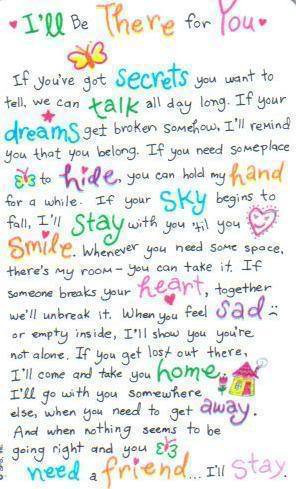 I'll Be There for You
If you've got secrets you want to
tell, we can talk all day long. If your
dreams get broken somehow, I'll remind
you that you belong. If you need someplace
to hide, you can hold my hand
for a while. If your sky begins to
fall, I'll stay with you 'til you
smile. Whenever you need some space,
there's my room – you can take it. If
someone breaks your heart, together
we'll unbreak it. When you feel sad
or empty inside, I'll show you you're
not alone. If you get lost out there,
I'll come and take you home.
I'll go with you somewhere
else, when you need to get away.
And when nothing seems to be
going right and you
need a friend... I'll stay.